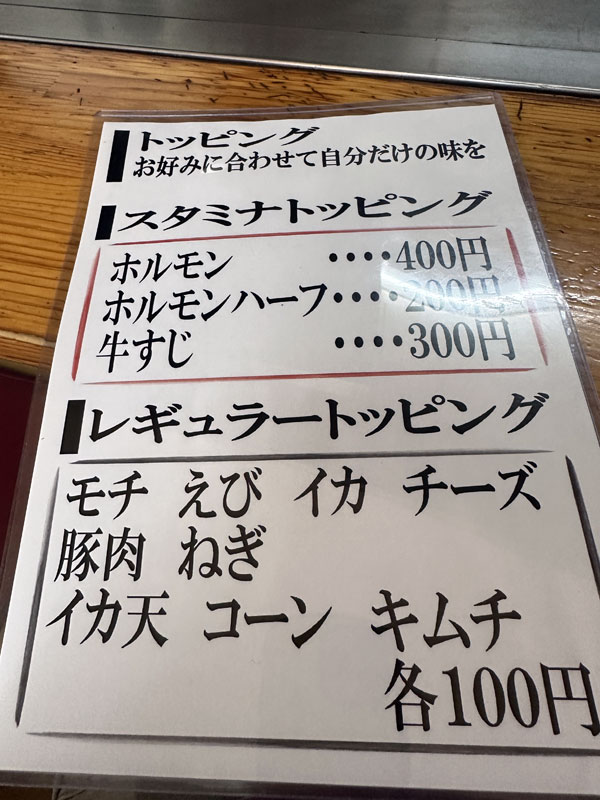 トッピング
お好みに合わせて自分だけの味を
スタミナトッピング
ホルモン ････400円
ホルモンハーフ････200円
牛すじ ････300円
レギュラートッピング
モチ えび イカ チーズ
豚肉 ねぎ
イカ天 コーン キムチ
各100円